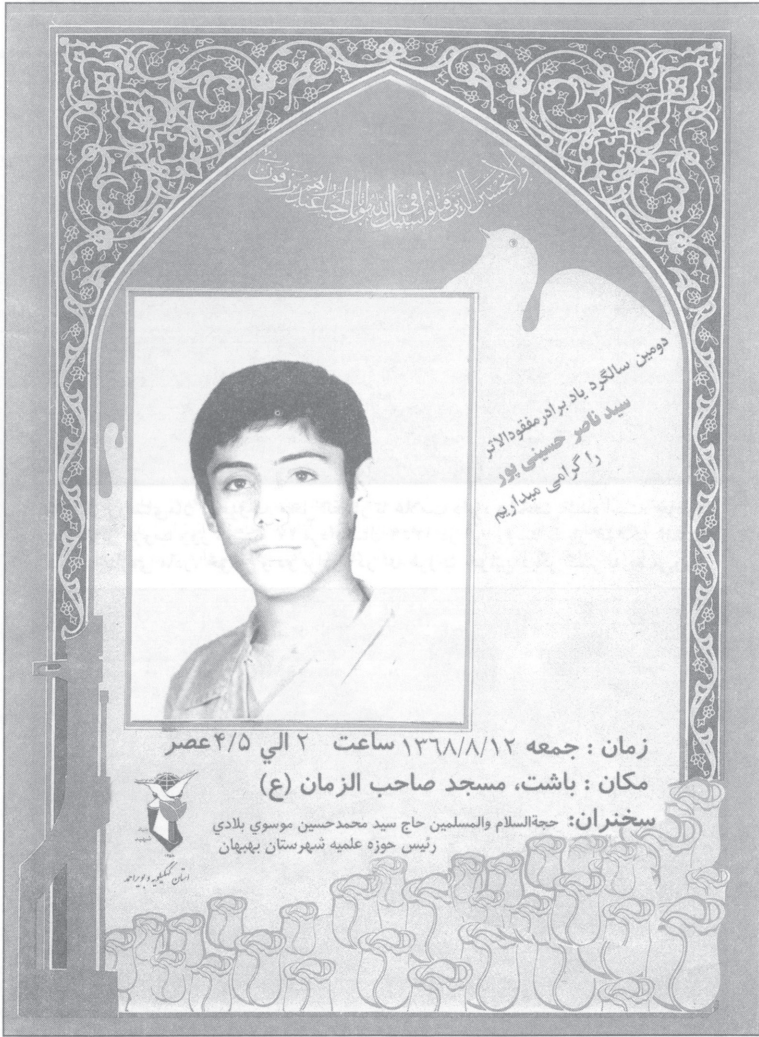 ولاتحسبن الذین قتلوا فی سبیل الله امواتا بل احیاء عند ربهم یرزقون
دومین سالگرد یاد برادر مفقودالاثر
سید ناصر حسینی پور
را گرامی میداریم
زمان : جمعه ۱۳۶۸/۸/۱۲ ساعت ۲ الي ۴/۵ عصر
مکان : باشت، مسجد صاحب الزمان (ع)
سخنران: حجةالسلام والمسلمین حاج سید محمدحسین موسوي بلادي
رئیس حوزه علمیه شهرستان بهبهان
بنیاد شهید
استان کهگیلویه و بویراحمد